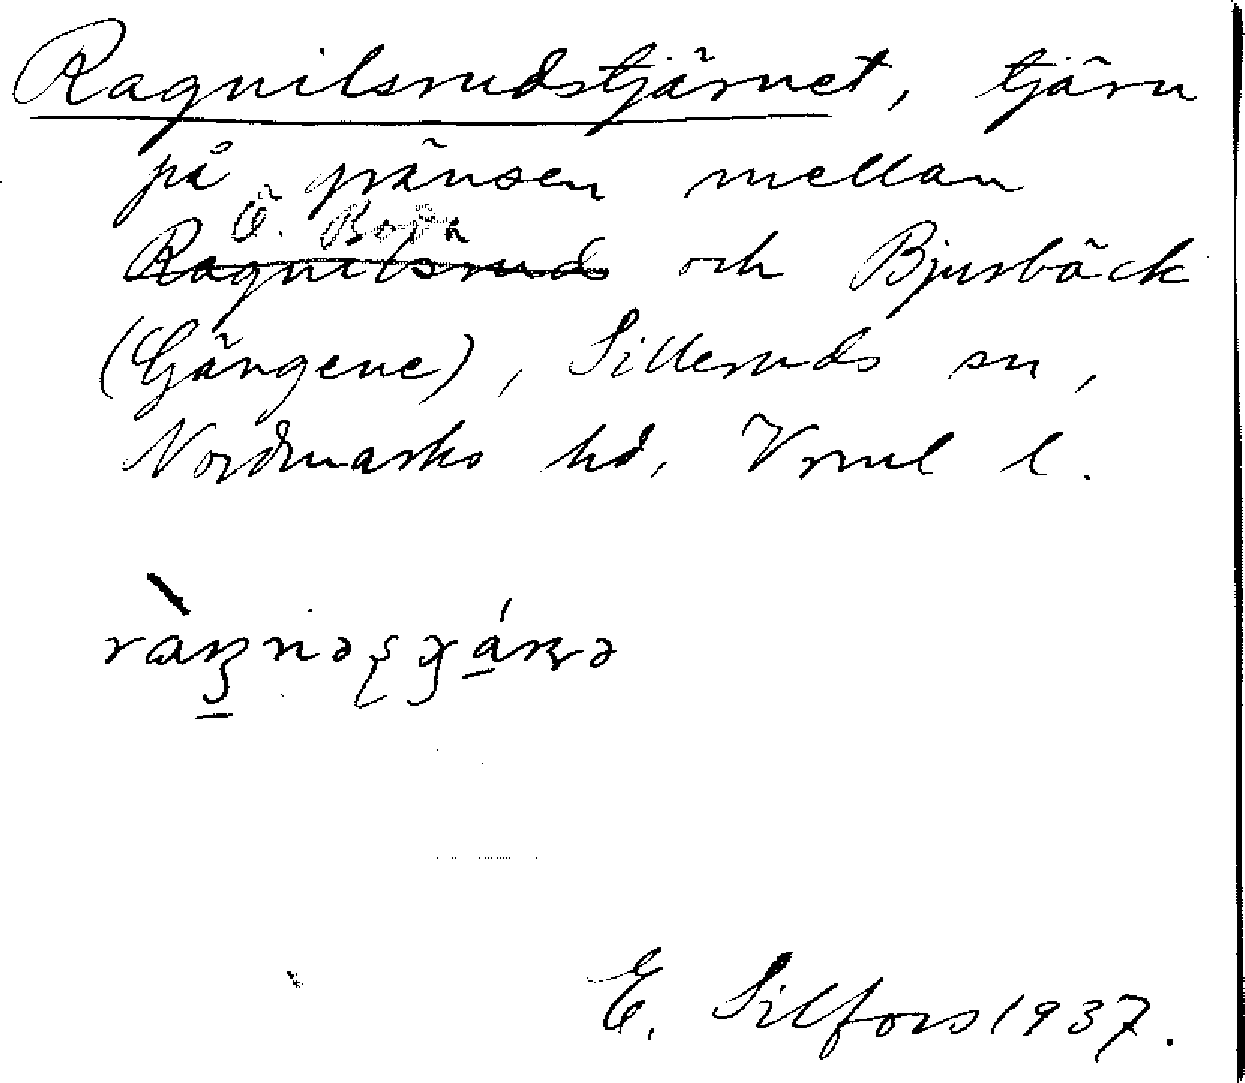 Ragnilsrudstjärnet, tjärn
på gränsen mellan
Ö. Boda
Ragnilsrud och Bjursbäck
(Gängene), Silleruds sn,
Nordmarks hd, Vrml l.
E. Silfors 1937.